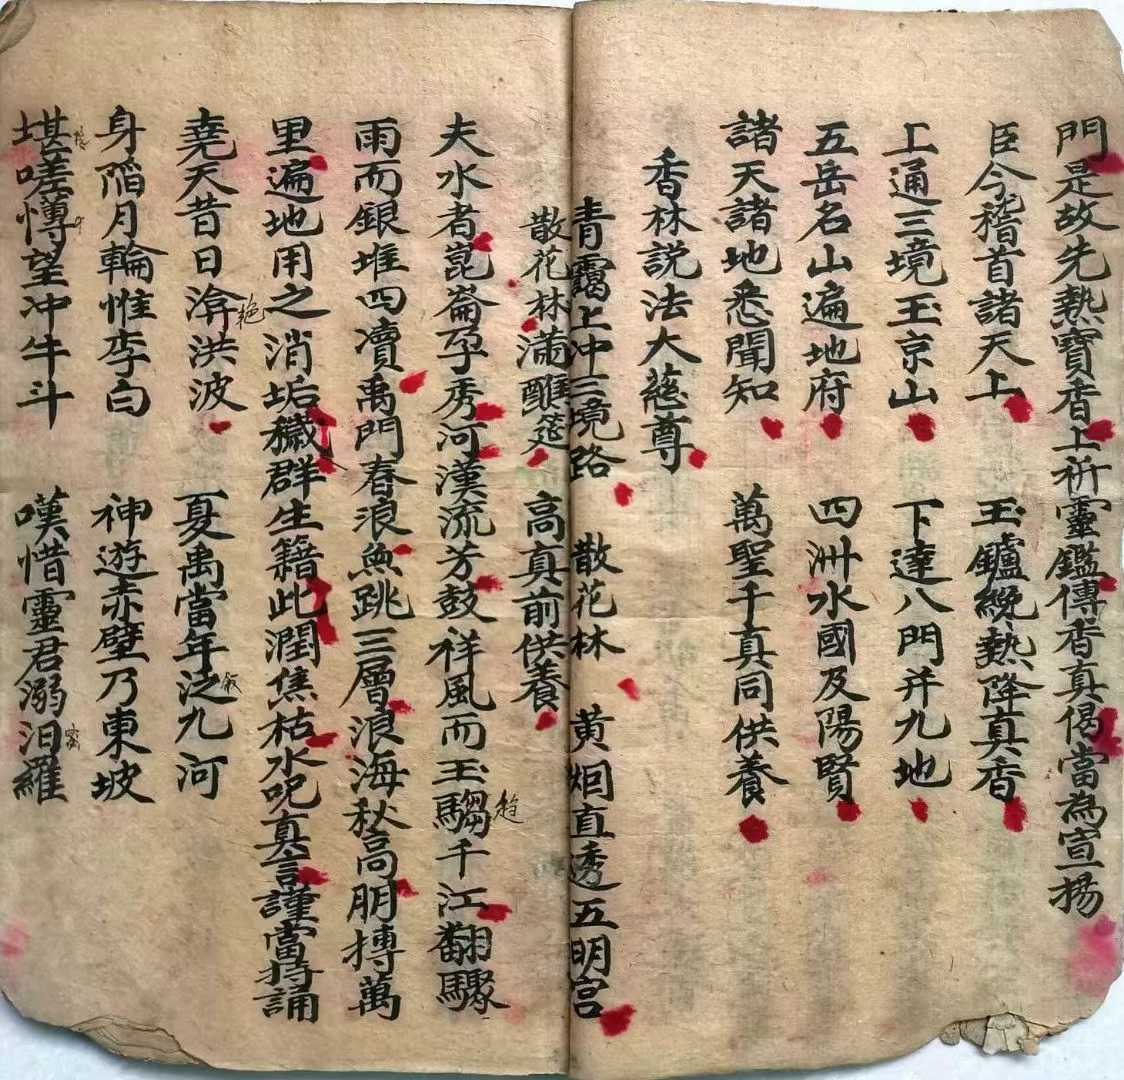 門是故先熱寶香上祈靈鑑傳香真偈當為宣揚
臣今稽首諸天上 玉鑪纔熱降真香
上通三境玉京山 下達八門并九地
五岳名山遍地府 四洲水國及陽賢
諸天諸地悉聞知 萬聖千真同供養
香林説法大慈尊
青靄上冲三境路 散花林 黄烟直透五明宫
散花林 滿醮筵 高真前供養
夫水者崑崙孕秀河漢流芳鼓祥風而玉騶千江翻驟
雨而銀堆四瀆禹門春浪魚跳三層浪海秋高朋摶萬
里遍地用之消垢穢群生籍此潤焦枯水呪真言謹當持誦
堯天昔日渰洪波 夏禹當年泛九河
身陷月輪惟李白 神遊赤壁乃東坡
堪嗟慱望冲牛斗 嘆惜靈君溺汨羅